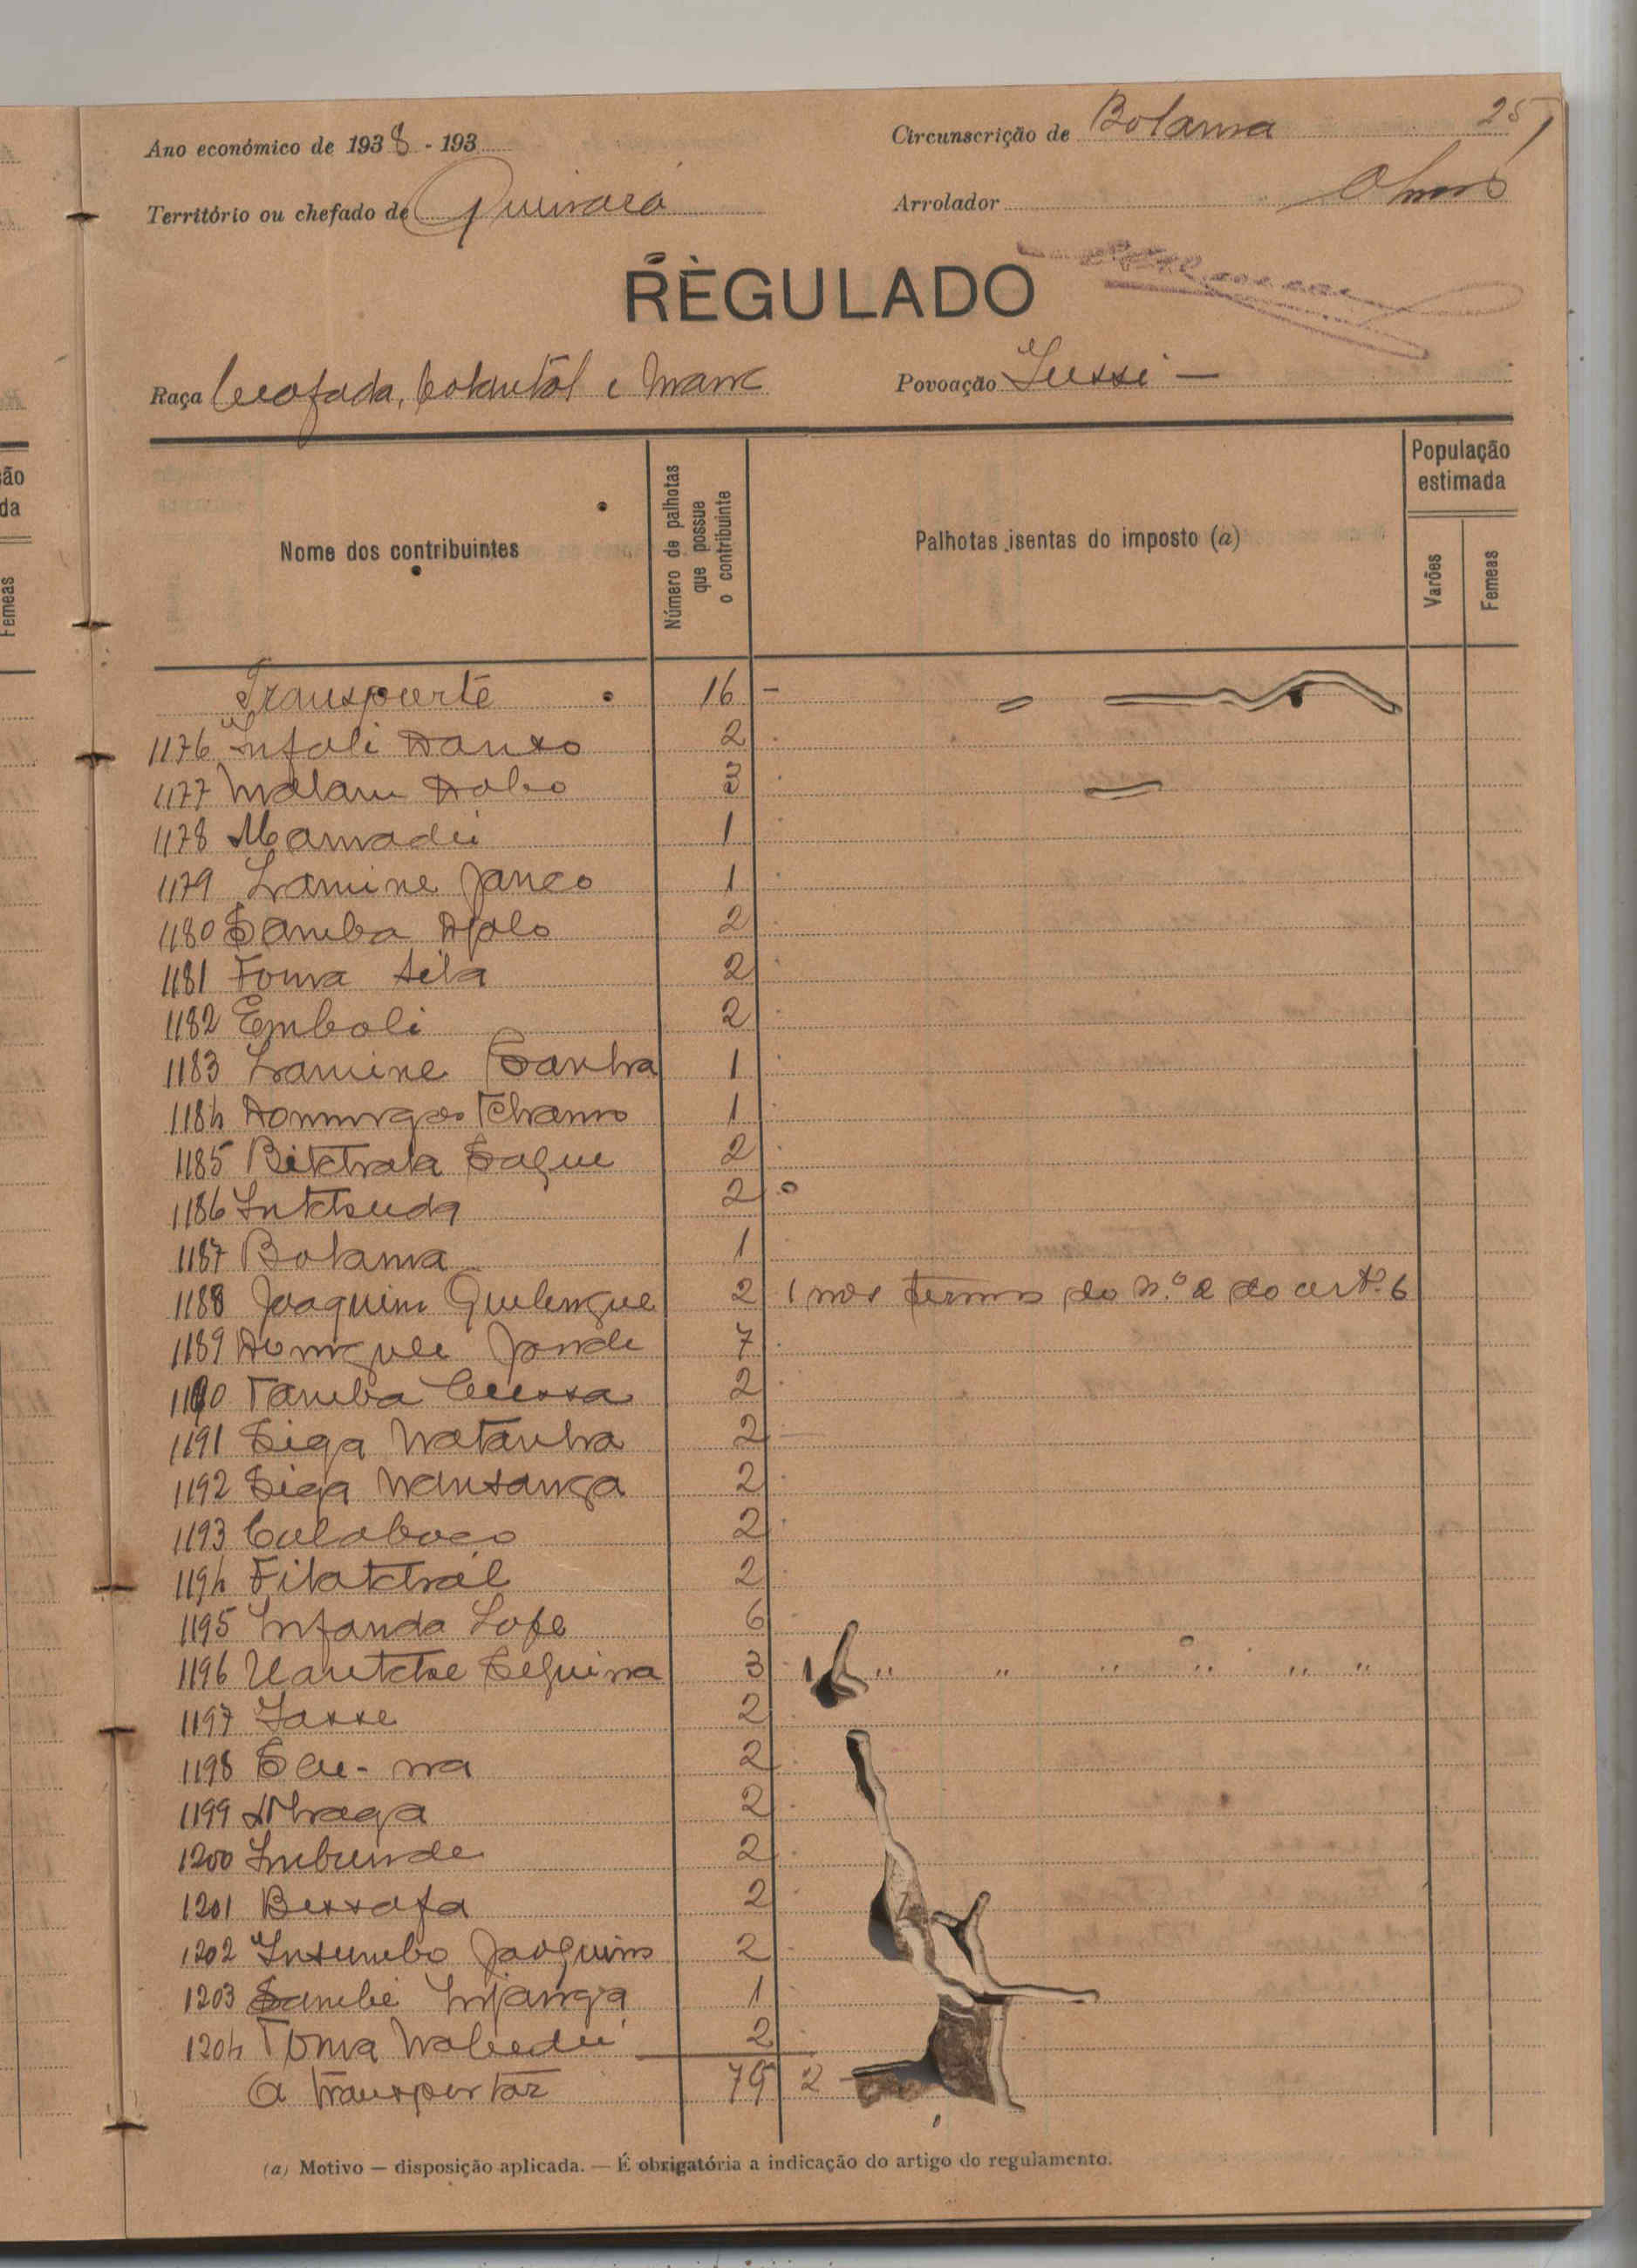 Ano económico de 1938 - 193
Circunscrição de Bolama 25
Território ou chefado de Quinará
Arrolador
REGULADO
Raça e Manc
Povoação Jussi —
Nome dos contribuintes
Número de palhotas que possue o contribuinte
Palhotas isentas do imposto (a)
População estimada
Varões
Femeas
Transporte 16 -
1176 Infali Danso 2
1177 Malam Dabo 3
1178 Mamadú 1
1179 Lamine Janco 1
1180 Samba Djalo 2
1181 Foma Sela 2
1182 Emboli 2
1183 Lamine Sanha 1
1184 Domingos Tchamo 1
1185 Biktchata Sague 2
1186 Intchuda 2
1187 Bolama 1
1188 Joaquim Quelengue 2 1 nos termos do n.º 2 do art.º 6
1189 Domgule Jande 7
1190 Tamba Cussa 2
1191 Siga Natanha 2
1192 Siga Nansanga 2
1193 Culaboco 2
1194 Filatchal 2
1195 Infanda Lofe 6
1196 Uantche Sequina 3 1 " " " " " "
1197 Jasse 2
1198 Sau-na 2
1199 2
1200 Imbunde 2
1201 Bessafa 2
1202 Insumbo Joaquim 2
1203 Sambé Injanga 1
1204 Toma Naludú 2
A transportar 79 2 -
(a) Motivo — disposição aplicada. — É obrigatória a indicação do artigo do regulamento.
ão
da
Femeas